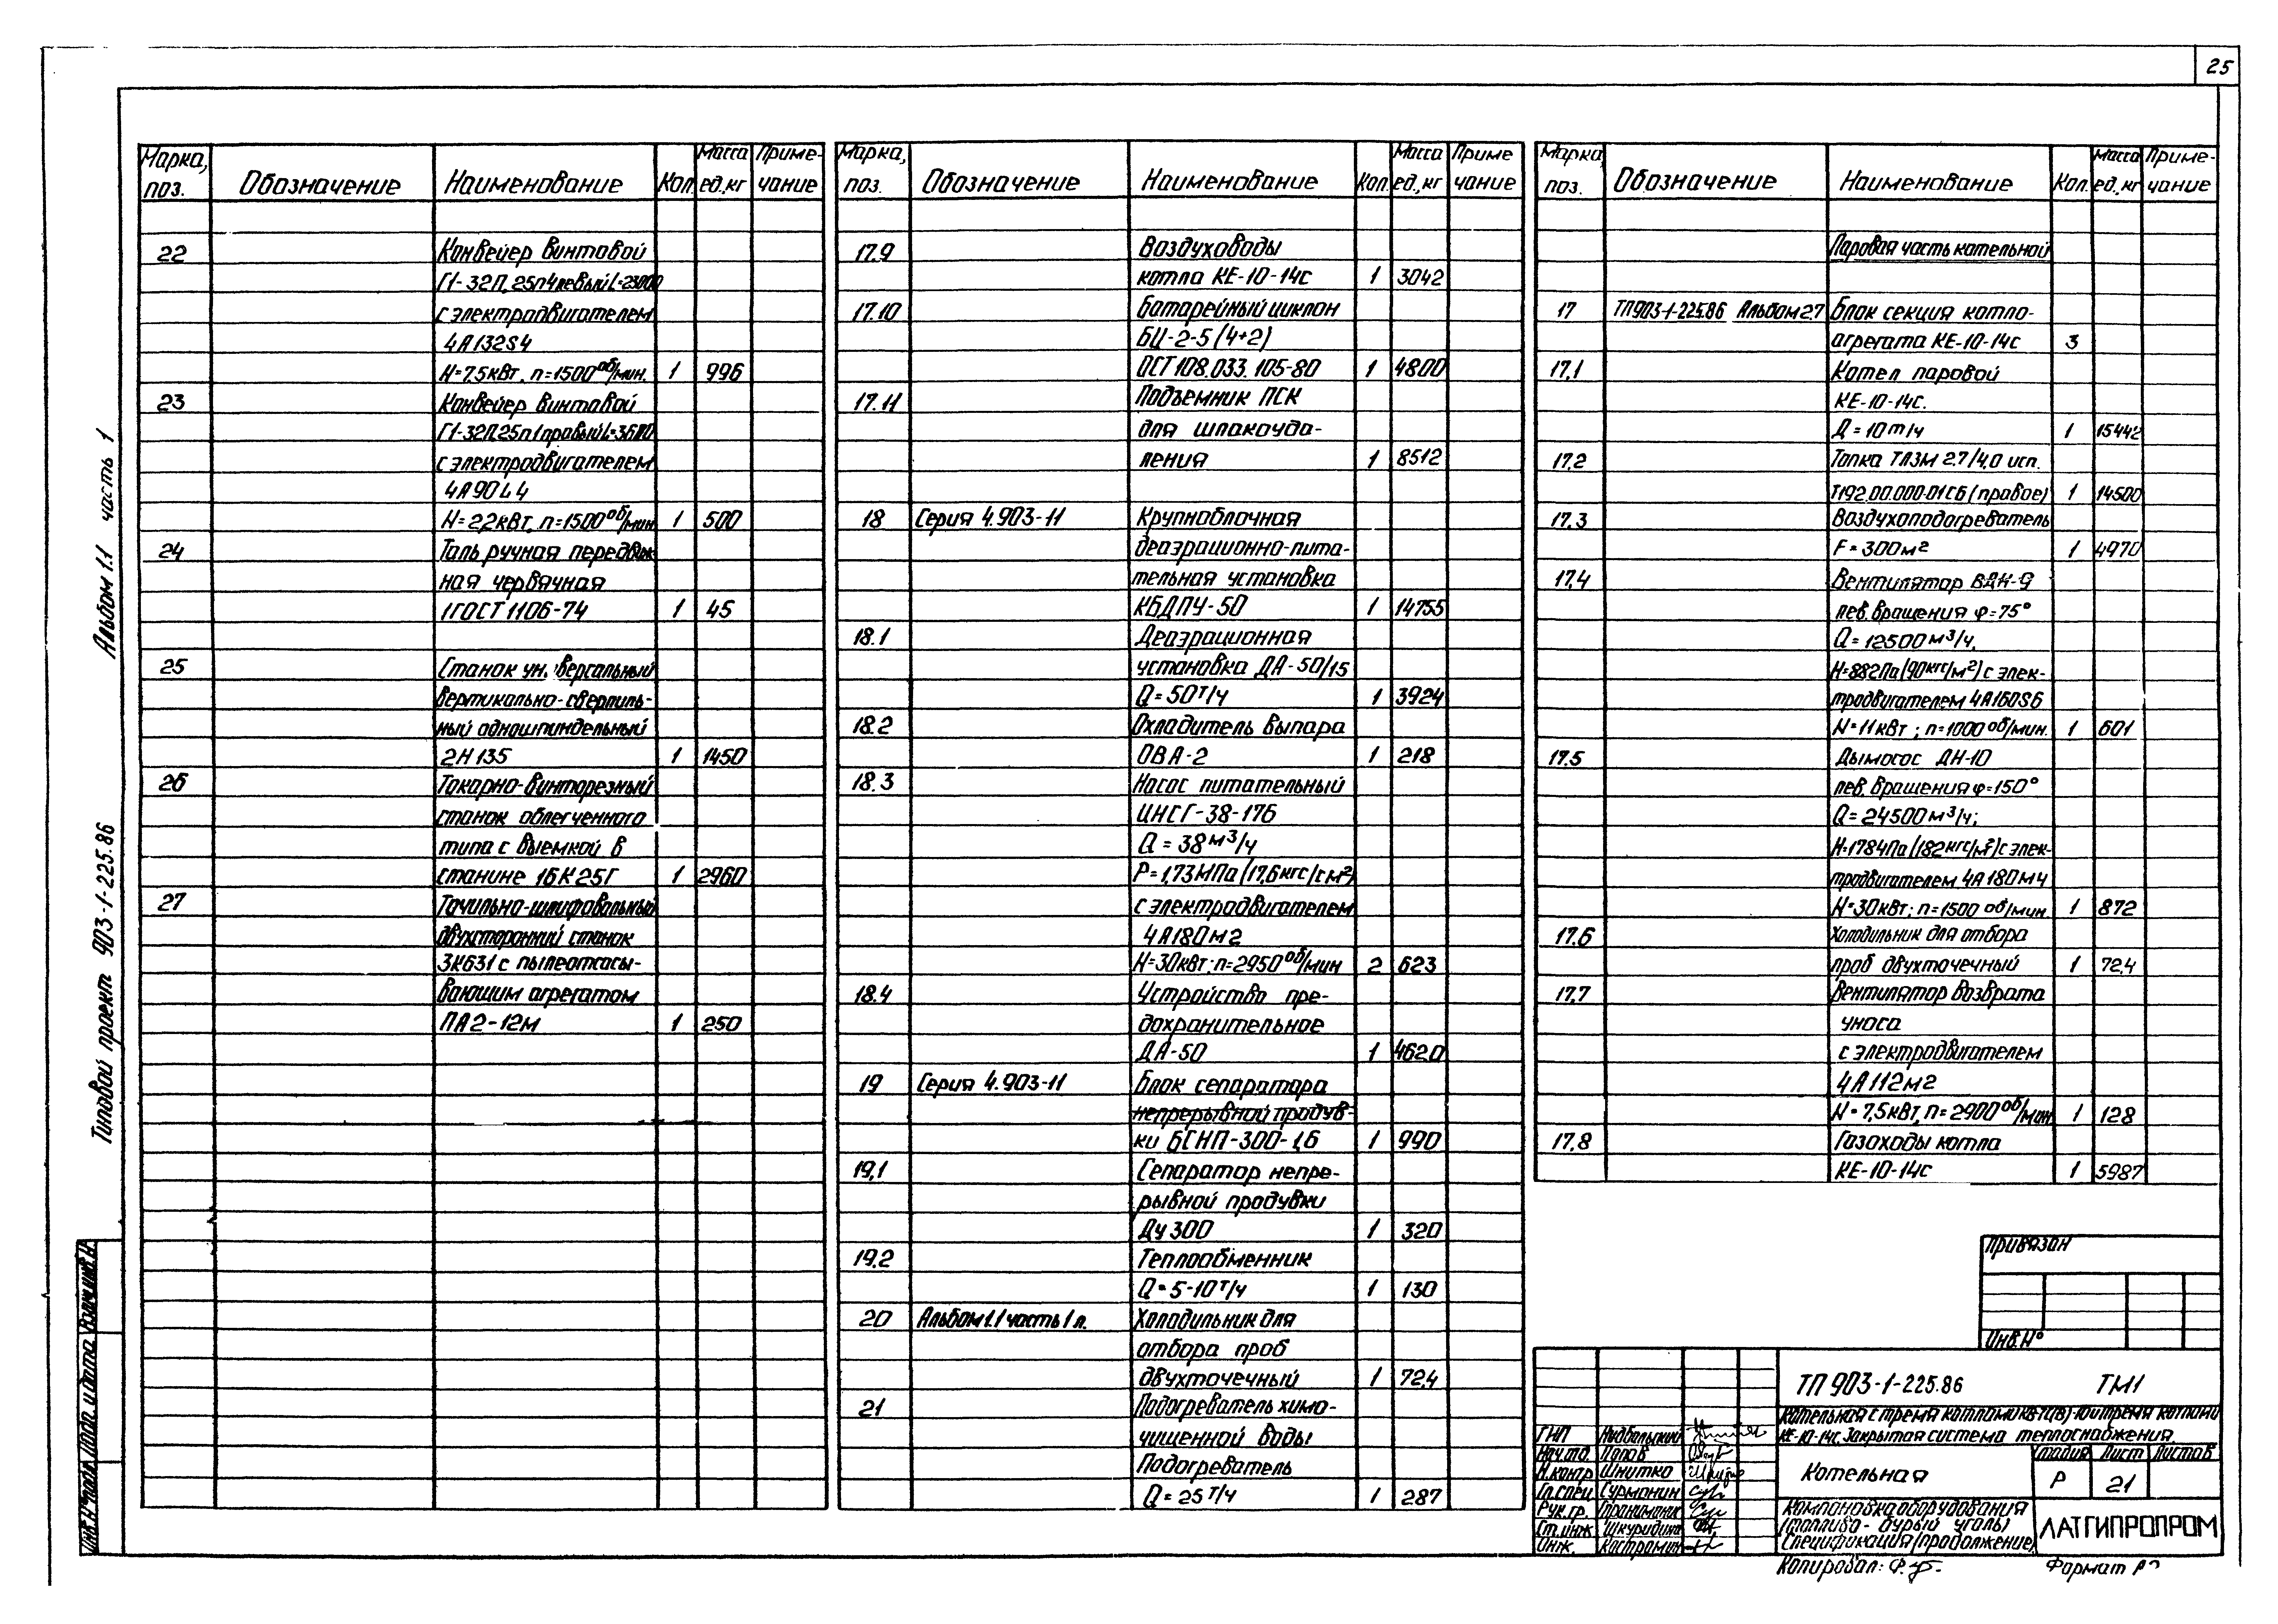 25
Марка, поз. Обозначение Наименование Кол. Масса ед, кг Приме- чание
22 Конвейер винтовой
с электродвигателем
4А132S4
N=7,5кВт, n=1500 об/мин. 1 996
23 Конвейер винтовой
с электродвигателем
4А90L4
N=2,2кВт, n=1500 об/мин 1 500
24 Таль ручная передвиж
ная червячная
1 ГОСТ 1106-74 1 45
25 Станок универсальный
вертикально-сверлиль-
ный одношпиндельный
2Н135 1 1450
26 Токарно-винторезный
станок облегченного
типа с выемкой в
станине 16К25Г 1 2960
27 Точильно-шлифовальный
двухсторонний станок
3К631 с пылеотсасы-
вающим агрегатом
ПА2-12м 1 250
Марка, поз. Обозначение Наименование Кол. Масса ед, кг Приме чание
17.9 Воздуховоды
котла КЕ-10-14с 1 3042
17.10 батарейный циклон
БЦ-2-5(4+2)
ОСТ 108.033.105-80 1 4800
17.11 Подъемник ПСК
для шлакоуда-
ления 1 8512
18 Серия 4.903-11 Крупноблочная
деаэрационно-пита-
тельная установка
КБДПУ-50 1 14755
18.1 Деаэрационная
установка ДА-50/15
Q=50т/ч 1 3924
18.2 Охладитель выпара
ОВА-2 1 218
18.3 Насос питательный
ЦНСГ-38-176
Q=38м³/ч
Р=1,73МПа(17,6кгс/см²)
с электродвигателем
4А180м2
N=30кВт; n=2950 об/мин 2 623
18.4 Устройство пре-
дохранительное
ДА-50 1 4620
19 Серия 4.903-11 Блок сепаратора
непрерывной продув-
ки БСНП-300-1,6 1 990
19,1 Сепаратор непре-
рывной продувки
Ду300 1 320
19.2 Теплообменник
Q=5-10т/ч 1 130
20 Альбом1.1 часть 1 л. Холодильник для
отбора проб
двухточечный 1 72,4
21 Подогреватель химо-
чищенной воды
Подогреватель
Q=25т/ч 1 287
Марка, поз. Обозначение Наименование Кол. Масса ед, кг Приме- чание
Паровая часть котельной
17 ТП903-1-225.86 Альбом 2.7 Блок секция котло-
агрегата КЕ-10-14с 3
17.1 Котел паровой
КЕ-10-14С.
Д=10т/ч 1 15442
17.2 Топка ТЛЗМ 2.7/4,0 исп.
Т192.00.000-01СБ (правое) 1 14500
17.3 Воздухоподогреватель
F=300м² 1 4970
17,4 Вентилятор ВДН-9
лев. вращения φ=75°
Q=12500м³/ч,
Н=882Па(90кгс/м²) с элек-
тродвигателем 4А160S6
N=11кВт; n=1000 об/мин. 1 601
17.5 Дымосос ДН-10
лев. вращения φ=150°
Q=24500м³/ч;
Н=1784Па(182кгс/м²) с элек-
тродвигателем 4А180м4
N=30кВт; n=1500 об/мин 1 872
17.6 Холодильник для отбора
проб двухточечный 1 72,4
17.7 Вентилятор возврата
уноса
с электродвигателем
4А112м2
N=7,5кВт, n=2900 об/мин 1 128
17,8 Газоходы котла
КЕ-10-14с 1 5987
Альбом 1.1 часть 1
Типовой проект 903-1-225.86
Инв.№ подл. Подп. и дата Взам.инв.№
Привязан
Инв.№
ТП 903-1-225.86 ТМ1
КЕ-10-14с. Закрытая система теплоснабжения.
ГИП
Нач.то. Попов
Н.контр Шнитко
Гл.спец Сурмонин
Рук.гр.
Ст.инж Шкуридина
Инж.
Котельная
Стадия Лист Листов
Р 21
Компоновка оборудования
(топливо - бурый уголь)
Спецификация (продолжение)
ЛАТГИПРОПРОМ
Копировал:
Формат